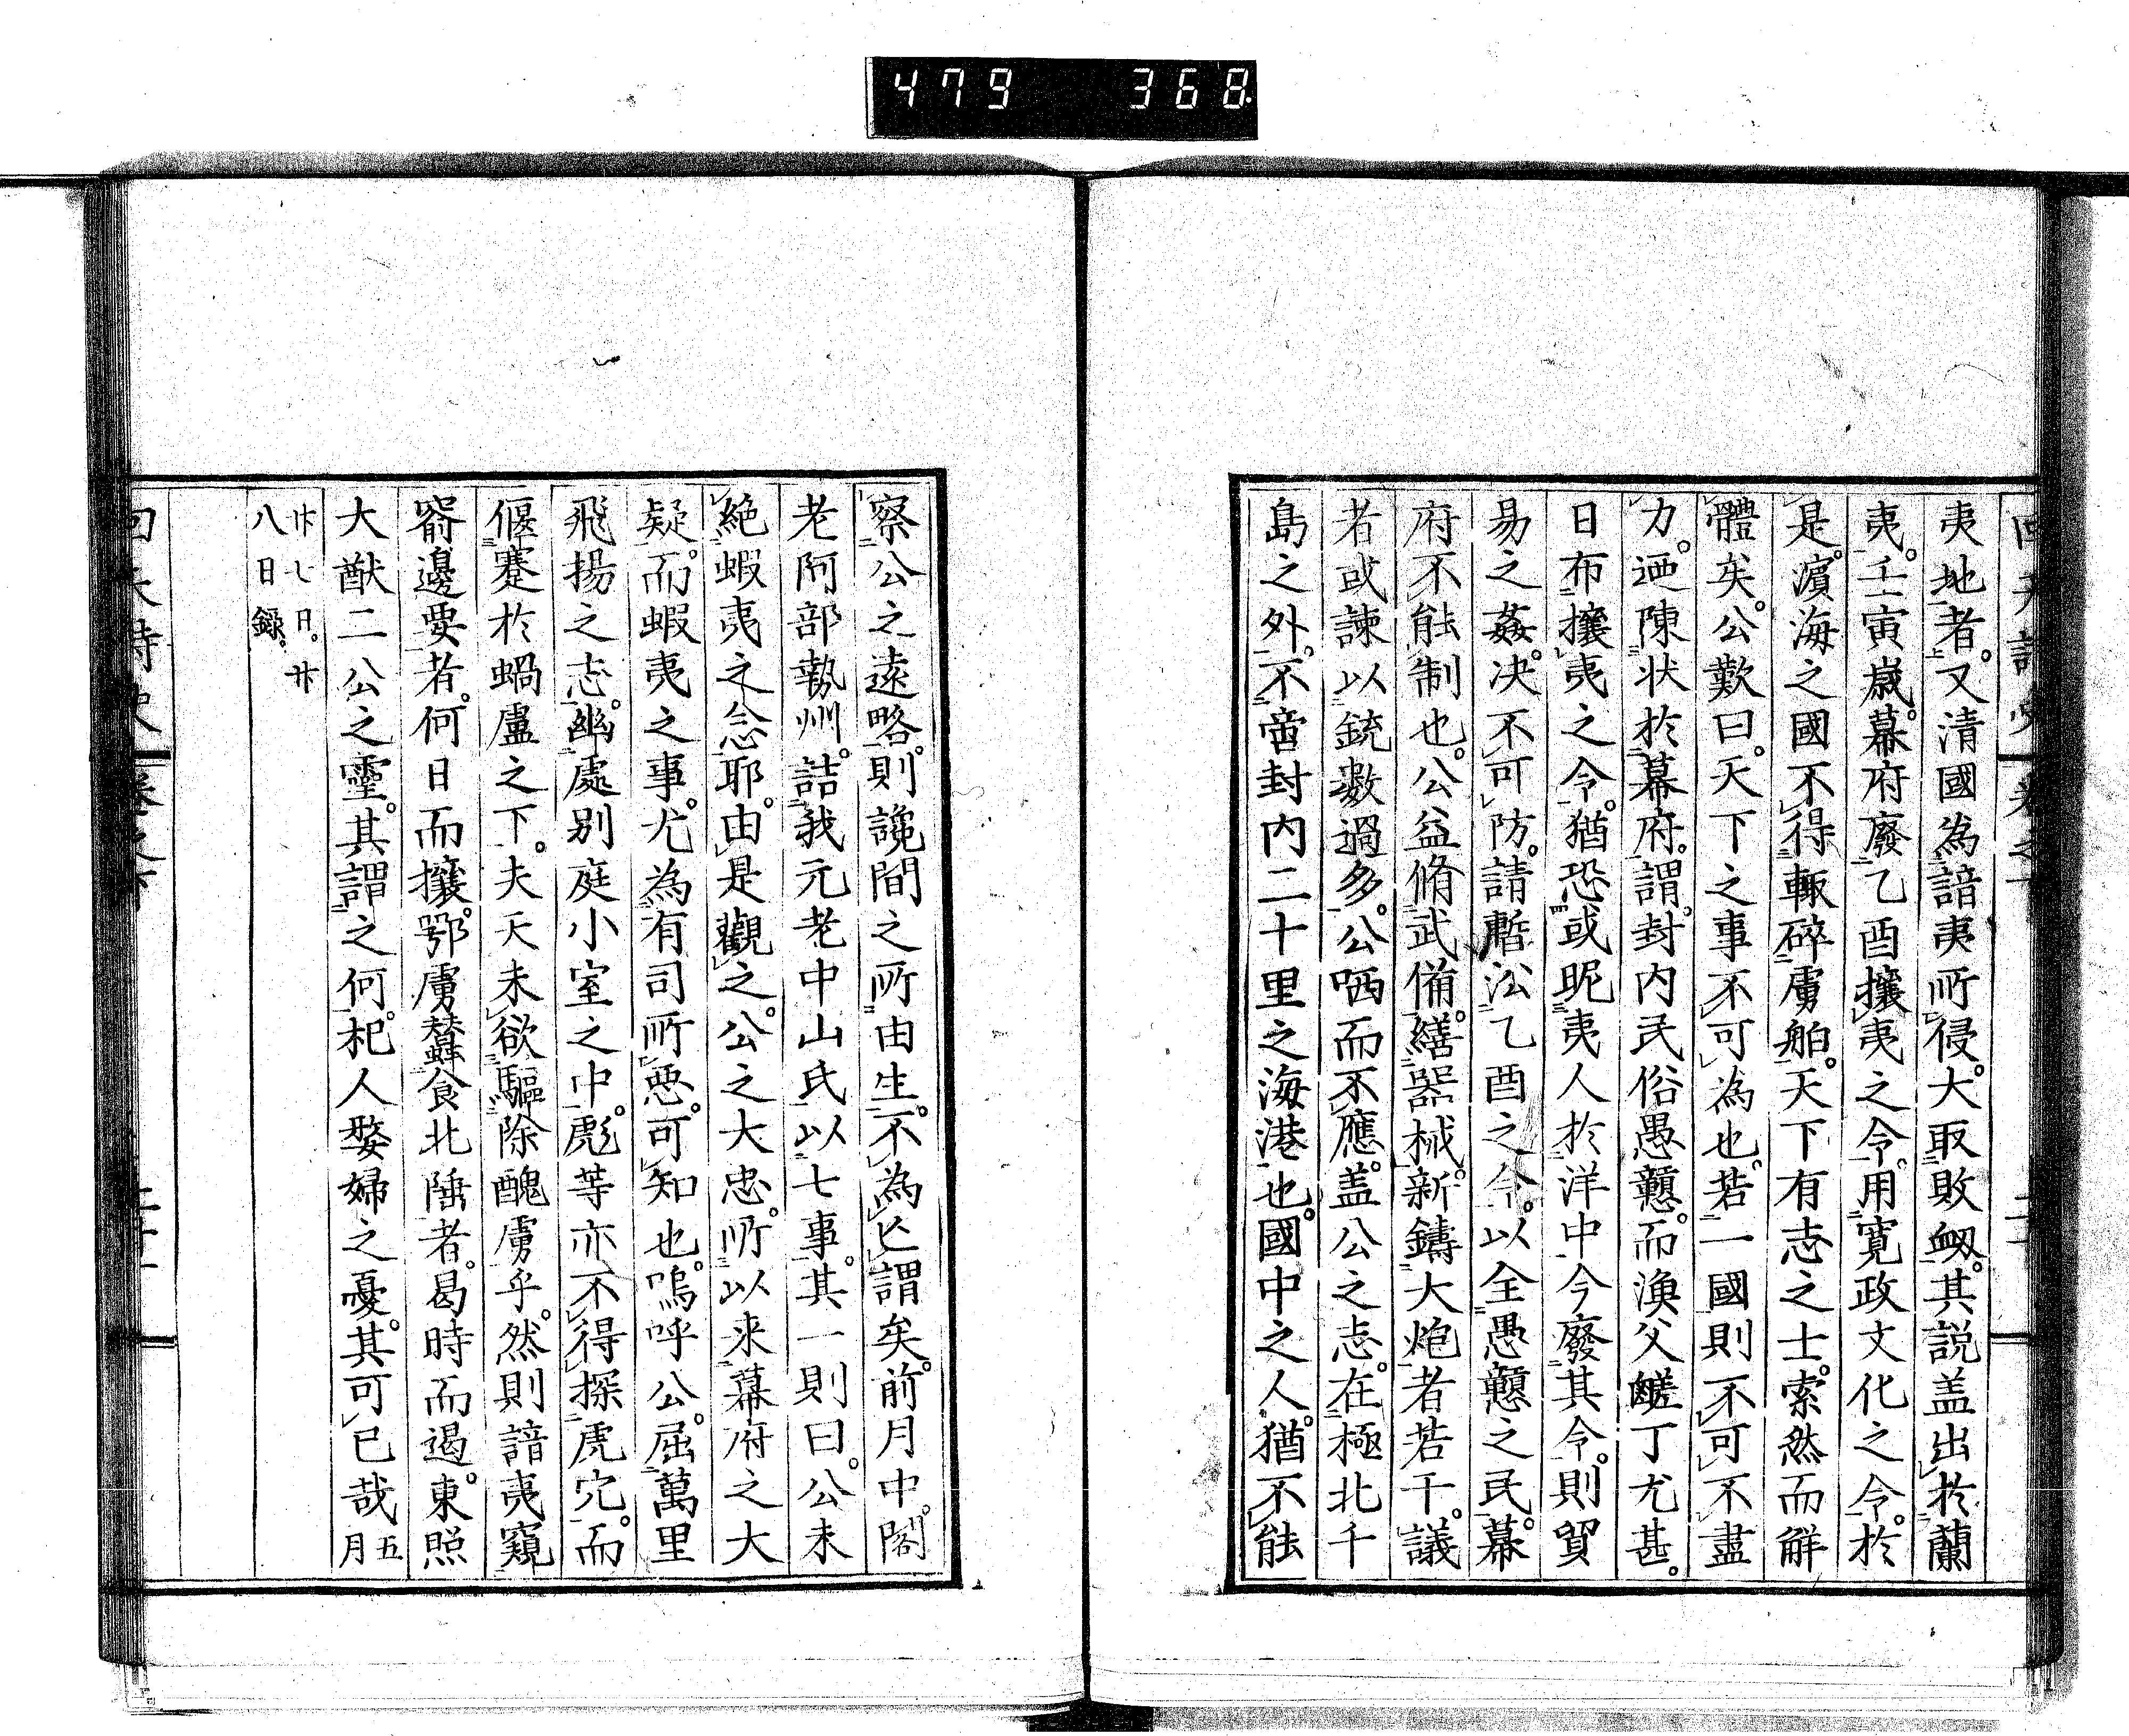 479 368
夷地者。又清國為諳夷所侵。大取敗衂。其説盖出於蘭
夷。壬寅歳。幕府廢乙酉攘夷之令。用寛政文化之令。於
是。濵海之國不得輙碎虜舶。天下有志之士。索然而解
體矣。公歎曰。天下之事不可為也。若一國則不可不盡
力。廼陳状於幕府。謂。封内民俗愚戇。而漁父鹺丁尤甚。
日布攘夷之令。猶恐或昵夷人於洋中。今廢其令。則貿
易之姦。决不可防。請暫沿乙酉之令。以全愚戇之民。幕
府不能制也。公益脩武備。繕器械。新鑄大炮者若干。議
者或諫以銃數過多。公哂而不應。盖公之志。在極北千
島之外。不啻封内二十里之海港也。國中之人。猶不能
察公之遠略。則讒間之所由生。不為亡謂矣。前月中。閣
老阿部勢州。詰我元老中山氏以七事。其一則曰。公未
絶蝦夷之念耶。由是觀之。公之大忠。所以来幕府之大
疑。而蝦夷之事。尤為有司所惡。可知也。嗚呼公。屈萬里
飛揚之志。幽處別庭小室之中。彪等亦不得探虎穴。而
偃蹇於蝸盧之下。夫天未欲驅除醜虜乎。然則諳夷窺
窬邊要者。何日而攘。鄂虜蠶食北陲者。曷時而遏。東照
大猷二公之靈。其謂之何。杞人嫠婦之憂。其可已哉五月
廿七日。廿
八日録。